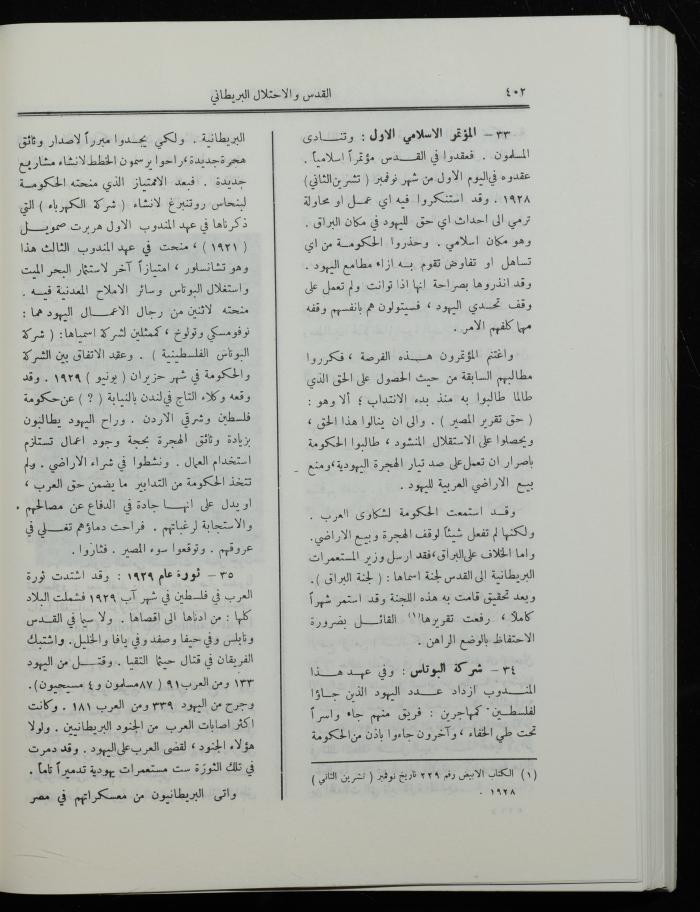 ٤٠٢
القدس والاحتلال البريطاني
٣٣ – المؤتمر الاسلامي الاول : وتنادى
المسلمون . فعقدوا في القدس مؤتمراً اسلامياً .
عقدوه في اليوم الاول من شهر نوفمبر ( تشرين الثاني )
١٩٢٨ . وقد استنكروا فيه اي عمل او محاولة
ترمي الى احداث اي حق لليهود في مكان البراق .
وهو مكان اسلامي . وحذروا الحكومة من اي
تساهل او تفاوض تقوم به ازاء مطامع اليهود .
وقد انذروها بصراحة انها اذا توانت ولم تعمل على
وقف تحدي اليهود ، فسيتولون هم بانفسهم وقفه
مهما كلفهم الامر .
واغتنم المؤتمرون هذه الفرصة ، فكرروا
مطالبهم السابقة من حيث الحصول على الحق الذي
طالما طالبوا به منذ بدء الانتداب ؛ ألا وهو :
( حق تقرير المصير ) . والى ان ينالوا هذا الحق ،
ويحصلوا على الاستقلال المنشود ، طالبوا الحكومة
باصرار ان تعمل على صد تيار الهجرة اليهودية ، ومنع
بيع الاراضي العربية لليهود .
وقد استمعت الحكومة لشكاوى العرب .
ولكنها لم تفعل شيئاً لوقف الهجرة وبيع الاراضي .
واما الخلاف على البراق ، فقد ارسل وزير المستعمرات
البريطانية الى القدس لجنة اسماها : ( لجنة البراق ) .
وبعد تحقيق قامت به هذه اللجنة وقد استمر شهراً
كاملاً ، رفعت تقريرها (١) القائل بضرورة
الاحتفاظ بالوضع الراهن .
٣٤ – شركة البوتاس : وفي عهد هذا
المندوب ازداد عدد اليهود الذين جاؤا
لفلسطين كمهاجرين : فريق منهم جاء واسراً
تحت طي الخفاء ، وآخرون جاءوا باذن من الحكومة
(١) الكتاب الابيض رقم ٢٢٩ تاريخ نوفمبر ( تشرين الثاني )
١٩٢٨ .
البريطانية . ولكي يجدوا مبرراً لاصدار وثائق
هجرة جديدة ، راحوا يرسمون الخطط لانشاء مشاريع
جديدة . فبعد الامتياز الذي منحته الحكومة
لبنحاس روتنبرغ لانشاء ( شركة الكهرباء ) التي
ذكرناها في عهد المندوب الاول هربرت صموييل
( ١٩٢١ ) ، منحت في عهد المندوب الثالث هذا
وهو تشانسلور ، امتيازاً آخر لاستثمار البحر الميت
واستغلال البوتاس وسائر الاملاح المعدنية فيه .
منحته لاثنين من رجال الاعمال اليهود هما :
نوفومسكي وتولوخ ، كممثلين لشركة اسمياها : ( شركة
البوتاس الفلسطينية ) . وعقد الاتفاق بين الشركة
والحكومة في شهر حزيران ( يونيو ) ١٩٢٩ . وقد
وقعه وكلاء التاج في لندن بالنيابة ( ? ) عن حكومة
فلسطين وشرقي الاردن . وراح اليهود يطالبون
بزيادة وثائق الهجرة بحجة وجود اعمال تستلزم
استخدام العمال . ونشطوا في شراء الاراضي . ولم
تتخذ الحكومة من التدابير ما يضمن حق العرب ،
او يدل على انها جادة في الدفاع عن مصالحهم .
والاستجابة لرغباتهم . فراحت دماؤهم تغلي في
عروقهم . وتوقعوا سوء المصير . فثاروا .
٣٥ – ثورة عام ١٩٢٩ : وقد اشتدت ثورة
العرب في فلسطين في شهر آب ١٩٢٩ فشملت البلاد
كلها : من ادناها الى اقصاها . ولا سيما في القدس
ونابلس وفي حيفا وصفد وفي يافا والخليل . واشتبك
الفريقان في قتال حيثما التقيا . وقتل من اليهود
١٣٣ ومن العرب ٩١ ( ٨٧ مسلمون و ٤ مسيحيون ) .
وجرح من اليهود ٣٣٩ ومن العرب ١٨١ . وكانت
اكثر اصابات العرب من الجنود البريطانيين . ولولا
هؤلاء الجنود ، لقضى العرب على اليهود . وقد دمرت
في تلك الثورة ست مستعمرات يهودية تدميراً تاماً .
واتى البريطانيون من معسكراتهم في مصر